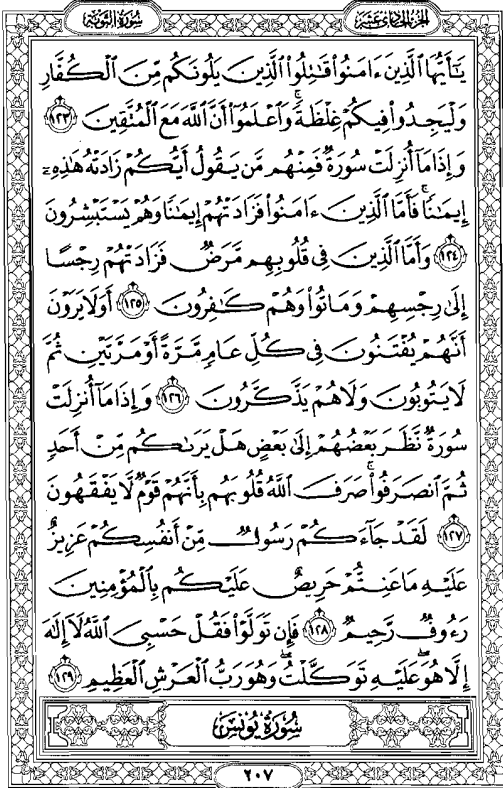 سورة التوبة
الجزء الحادي عشر
يَٰٓأَيُّهَا ٱلَّذِينَ ءَامَنُوا۟ قَٰتِلُوا۟ ٱلَّذِينَ يَلُونَكُم مِّنَ ٱلْكُفَّارِ
وَلْيَجِدُوا۟ فِيكُمْ غِلْظَةً ۚ وَٱعْلَمُوٓا۟ أَنَّ ٱللَّهَ مَعَ ٱلْمُتَّقِينَ ١٢٣
وَإِذَا مَآ أُنزِلَتْ سُورَةٌ فَمِنْهُم مَّن يَقُولُ أَيُّكُمْ زَادَتْهُ هَٰذِهِۦٓ
إِيمَٰنًا ۚ فَأَمَّا ٱلَّذِينَ ءَامَنُوا۟ فَزَادَتْهُمْ إِيمَٰنًا وَهُمْ يَسْتَبْشِرُونَ
١٢٤ وَأَمَّا ٱلَّذِينَ فِى قُلُوبِهِم مَّرَضٌ فَزَادَتْهُمْ رِجْسًا
إِلَىٰ رِجْسِهِمْ وَمَاتُوا۟ وَهُمْ كَٰفِرُونَ ١٢٥ أَوَلَا يَرَوْنَ
أَنَّهُمْ يُفْتَنُونَ فِى كُلِّ عَامٍ مَّرَّةً أَوْ مَرَّتَيْنِ ثُمَّ
لَا يَتُوبُونَ وَلَا هُمْ يَذَّكَّرُونَ ١٢٦ وَإِذَا مَآ أُنزِلَتْ
سُورَةٌ نَّظَرَ بَعْضُهُمْ إِلَىٰ بَعْضٍ هَلْ يَرَىٰكُم مِّنْ أَحَدٍ
ثُمَّ ٱنصَرَفُوا۟ ۚ صَرَفَ ٱللَّهُ قُلُوبَهُم بِأَنَّهُمْ قَوْمٌ لَّا يَفْقَهُونَ
١٢٧ لَقَدْ جَآءَكُمْ رَسُولٌ مِّنْ أَنفُسِكُمْ عَزِيزٌ
عَلَيْهِ مَا عَنِتُّمْ حَرِيصٌ عَلَيْكُم بِٱلْمُؤْمِنِينَ
رَءُوفٌ رَّحِيمٌ ١٢٨ فَإِن تَوَلَّوْا۟ فَقُلْ حَسْبِىَ ٱللَّهُ لَآ إِلَٰهَ
إِلَّا هُوَ ۖ عَلَيْهِ تَوَكَّلْتُ ۖ وَهُوَ رَبُّ ٱلْعَرْشِ ٱلْعَظِيمِ ١٢٩
سُورَةُ يُونُسَ
٢٠٧